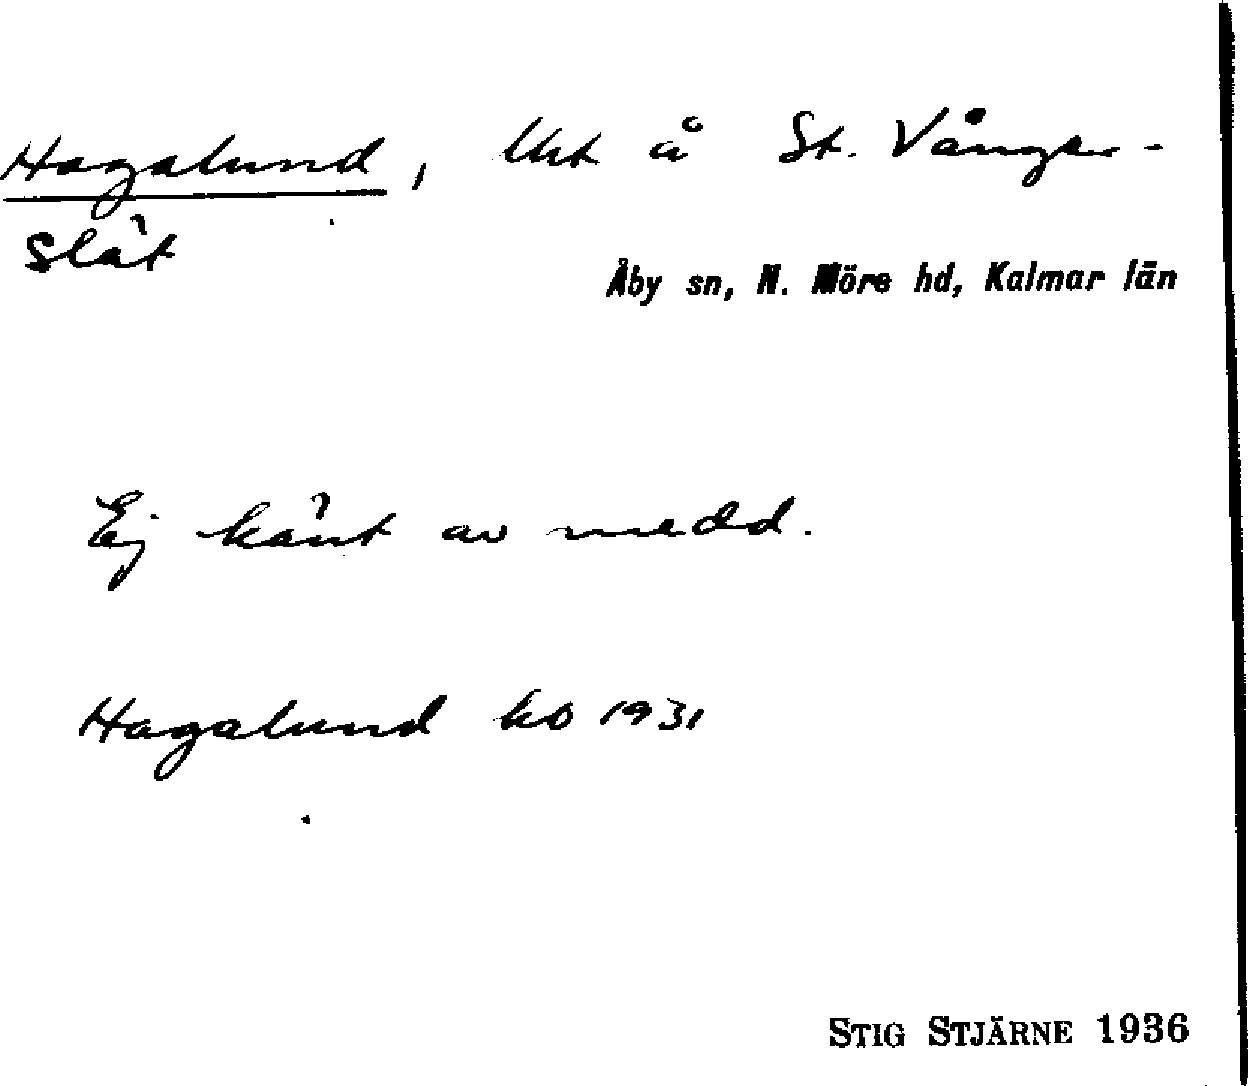 Hagalund, lht å St. Vånger-
slät
Åby sn, N. Möre hd, Kalmar län
Ej känt av medd.
Hagalund ko 1931
STIG STJÄRNE 1936